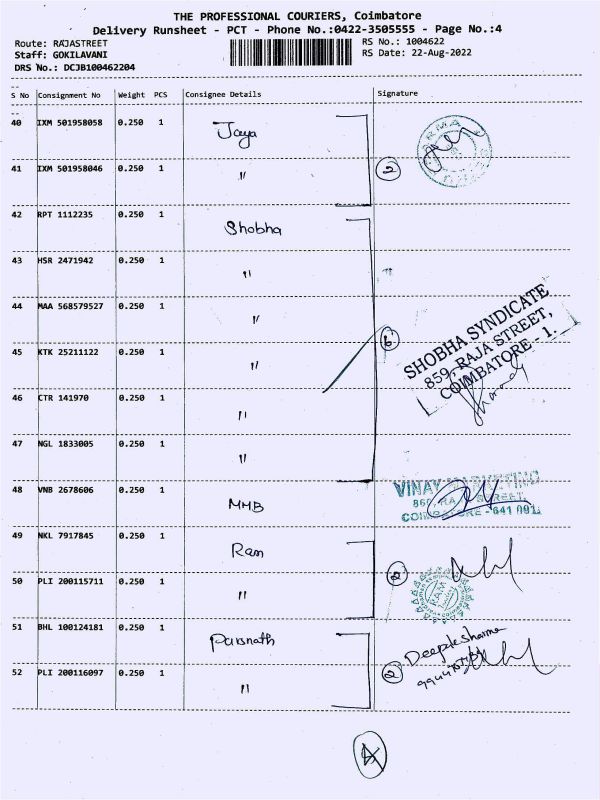 THE PROFESSIONAL COURIERS, Coimbatore
Delivery Runsheet - PCT - Phone No.:0422-3505555 - Page No.:4
Route: RAJASTREET
RS No.: 1004622
Staff: GOKILAVANI
RS Date: 22-Aug-2022
DRS No.: DCJB100462204
S No Consignment No Weight PCS Consignee Details Signature
40 IXM 501958058 0.250 1 Jaya
41 IXM 501958046 0.250 1 〃 2
42 RPT 1112235 0.250 1 Shobha
43 HSR 2471942 0.250 1 〃
44 MAA 568579527 0.250 1 〃
6
SHOBHA SYNDICATE
859, RAJA STREET,
COIMBATORE - 1.
45 KTK 25211122 0.250 1 〃
46 CTR 141970 0.250 1 〃
47 NGL 1833005 0.250 1 〃
48 VNB 2678606 0.250 1 MMB
VINAY MARKETING
STREET
COIMBATORE - 641 001.
49 NKL 7917845 0.250 1 Ram
50 PLI 200115711 0.250 1 〃 2
RAM
51 BHL 100124181 0.250 1 Parsnath
Deepak Sharma
52 PLI 200116097 0.250 1 〃 2